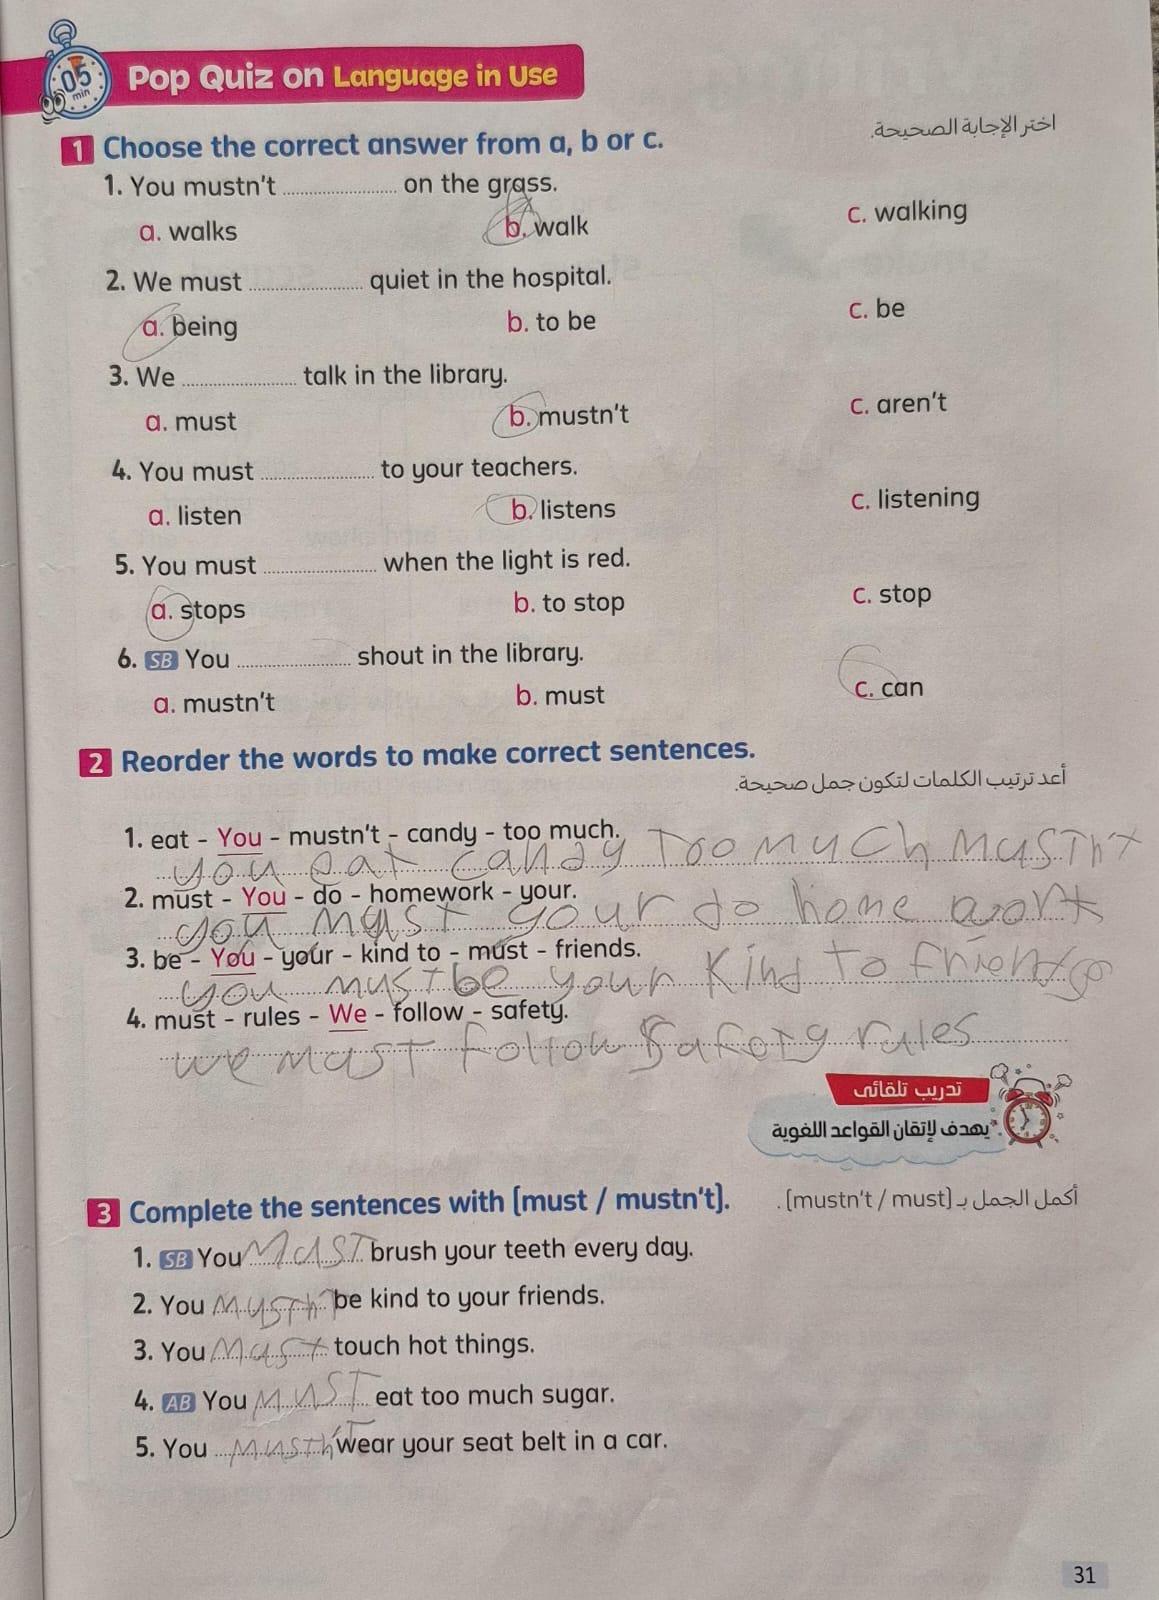 05
min
Pop Quiz on Language in Use
اختر الإجابة الصحيحة.
1 Choose the correct answer from a, b or c.
1. You mustn't .................... on the grass.
a. walks b. walk c. walking
2. We must .................... quiet in the hospital.
a. being b. to be c. be
3. We .................... talk in the library.
a. must b. mustn't c. aren't
4. You must .................... to your teachers.
a. listen b. listens c. listening
5. You must .................... when the light is red.
a. stops b. to stop c. stop
6. SB You .................... shout in the library.
a. mustn't b. must c. can
2 Reorder the words to make correct sentences.
أعد ترتيب الكلمات لتكون جمل صحيحة.
1. eat - You - mustn't - candy - too much.
you eat candy Too MuCh MusTn't
2. must - You - do - homework - your.
you must your do home work
3. be - You - your - kind to - must - friends.
you musT be your Kind To friends
4. must - rules - We - follow - safety.
we musT follow Safety rules
تدريب تلقائى
يهدف لإتقان القواعد اللغوية.
3 Complete the sentences with (must / mustn't).
أكمل الجمل بـ (mustn't / must).
1. SB You MusT brush your teeth every day.
2. You MusTn't be kind to your friends.
3. You Must touch hot things.
4. AB You MusT eat too much sugar.
5. You MusTn't wear your seat belt in a car.
31